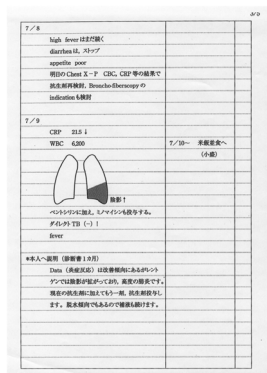 3/5
7/8
high fever はまだ続く
diarrhea は、ストップ
appetite poor
明日の Chest X-P CBC, CRP 等の結果で
抗生剤再検討, Broncho-fiberscopy の
indication も検討
7/9
CRP 21.5 ↓
WBC 6,200
7/10~ 米飯並食へ
(小盛)
陰影↑
ペントシリンに加え、ミノマイシンも投与する。
ダイレクト TB (-) !
fever
*本人へ説明 (診断書1カ月)
Data (炎症反応) は改善傾向にあるがレント
ゲンでは陰影が拡がっており, 高度の肺炎です。
現在の抗生剤に加えてもう一剤, 抗生剤投与し
ます。脱水傾向でもあるので補液も続けます。